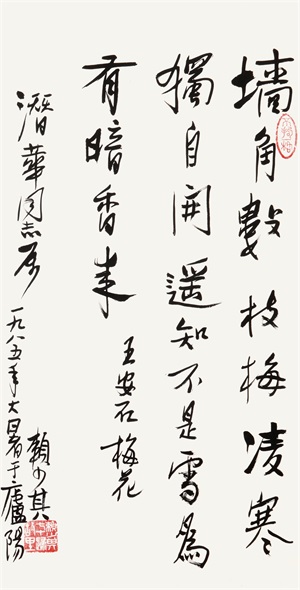 墙角數枝梅凌寒
獨自開遥知不是雪爲
有暗香来
王安石梅花
潛華同志属
一九八五年大暑于廬陽
賴少其